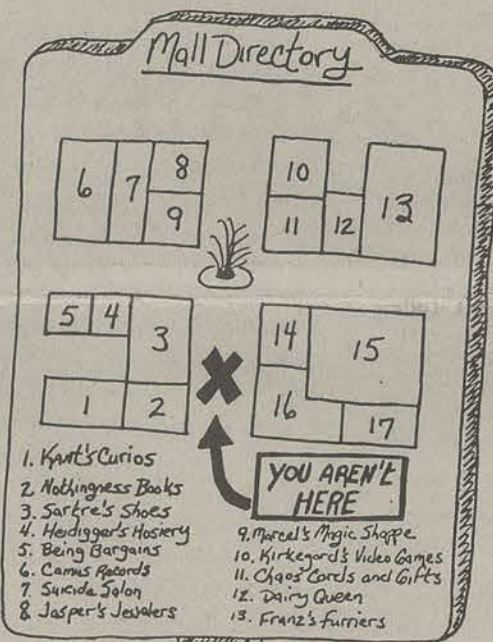 Mall Directory
6
7
8
9
10
11
12
13
5
4
3
1
2
14
15
16
17
YOU AREN'T
HERE
1. Kant's Curios
2 Nothingness Books
3. Sartre's Shoes
4. Heidigger's Hosiery
5. Being Bargains
6. Camus Records
7. Suicide Salon
8 Jasper's Jewelers
9. Marcel's Magic Shoppe
10. Kirkegard's Video Games
11. Chaos Cards and Gifts
12. Dairy Queen
13. Franz's Furriers